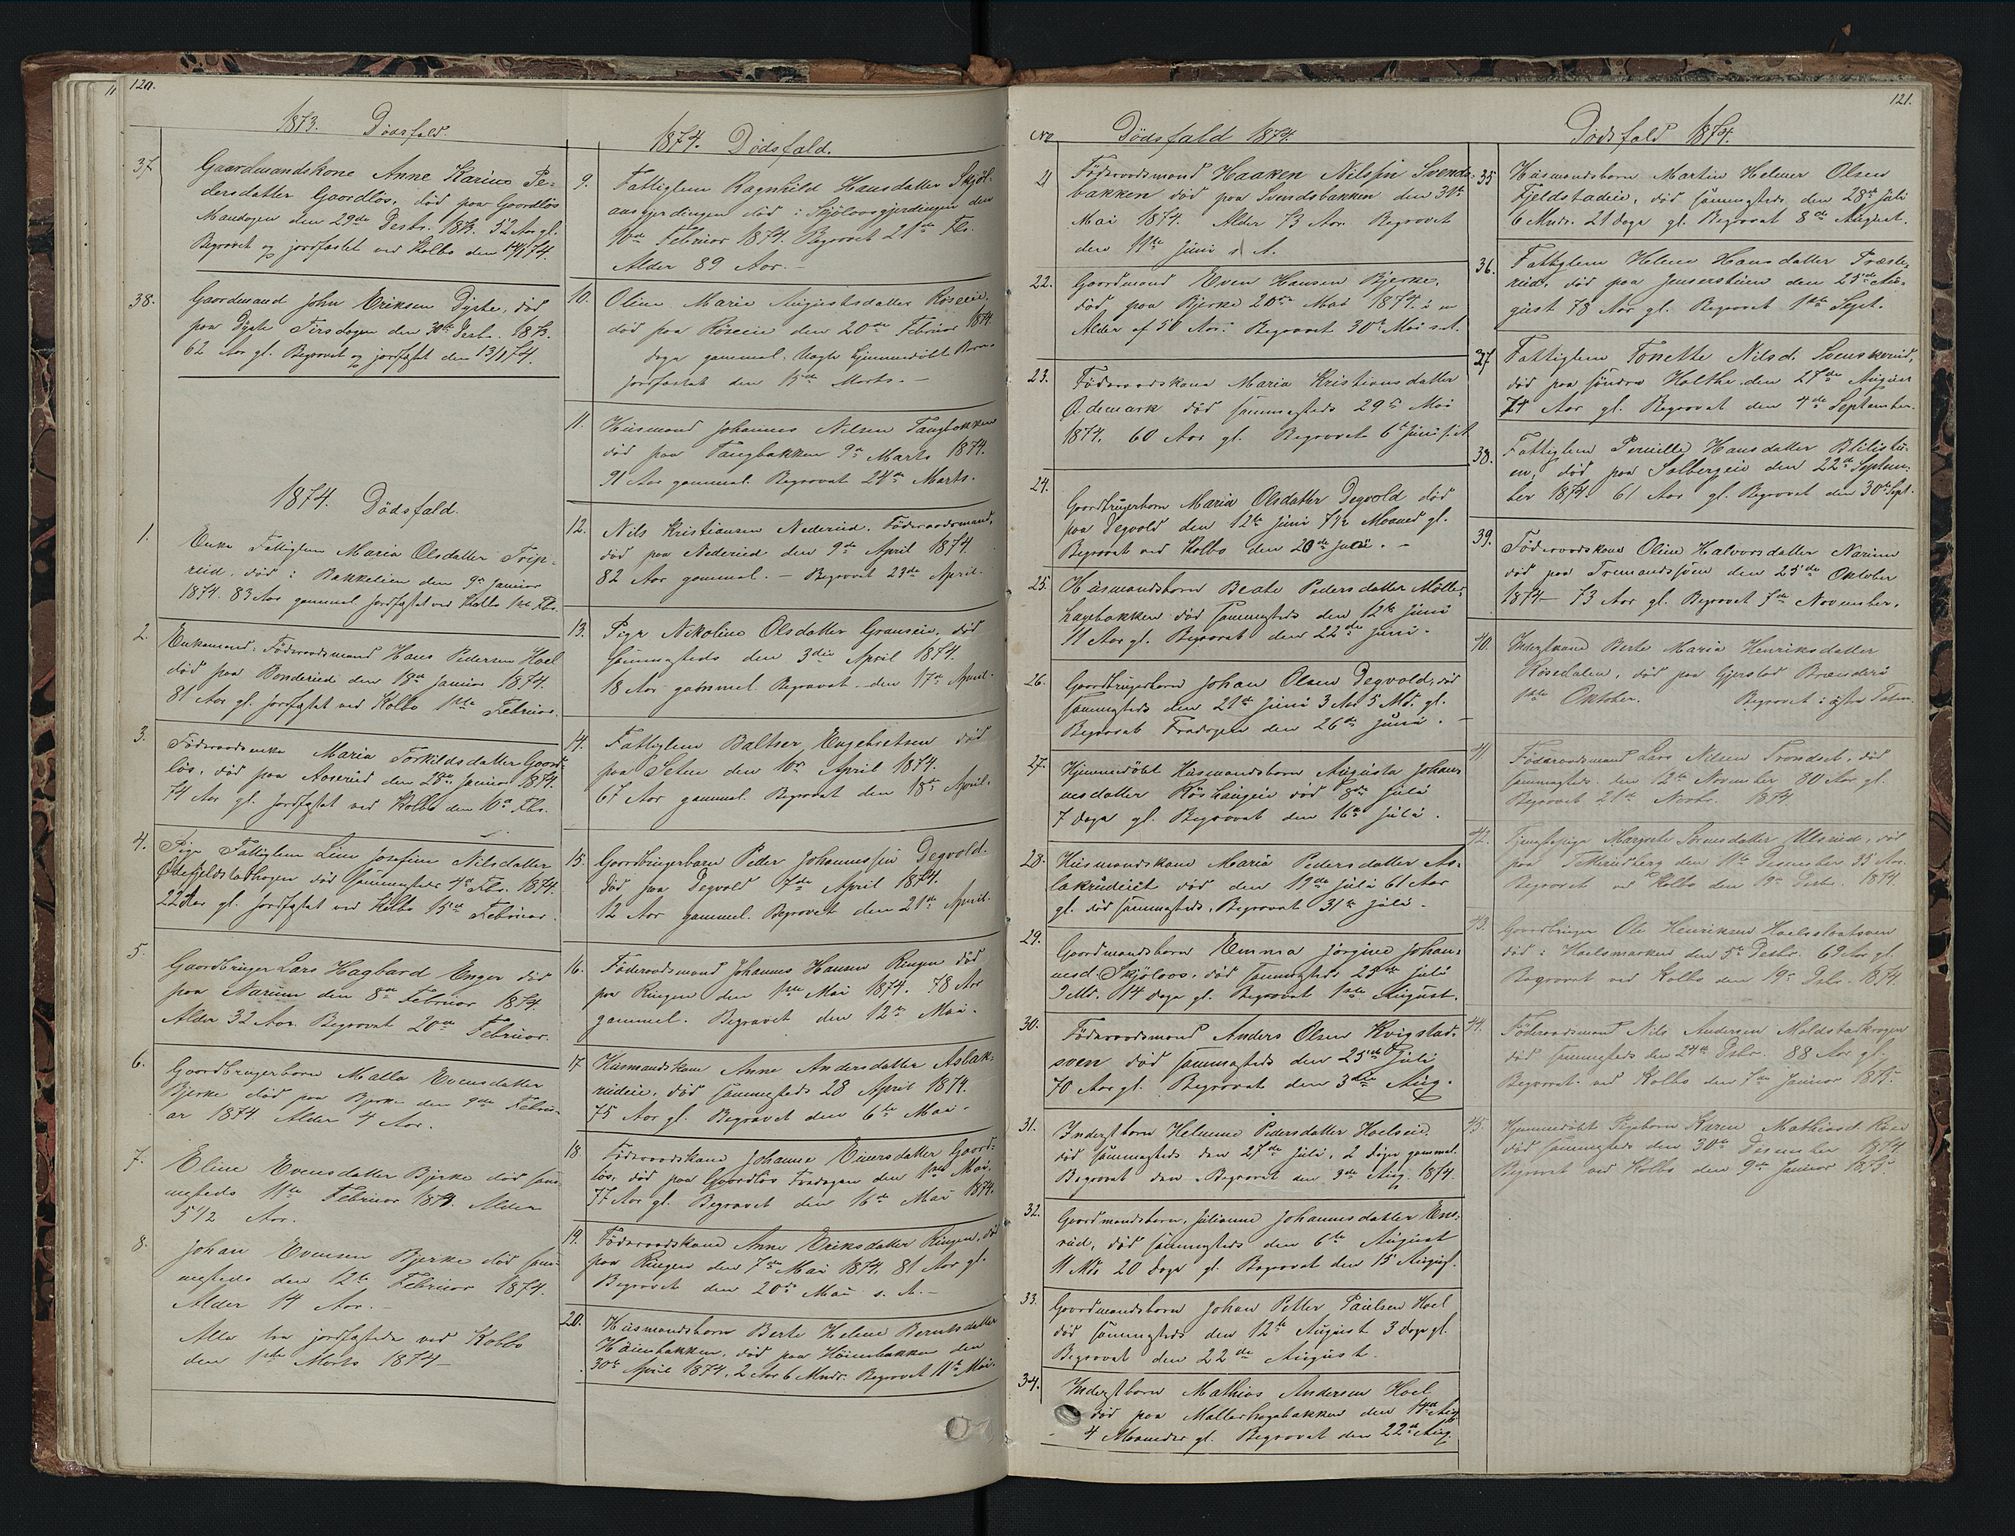 120.
1873. Dödsfald.
37 Gaardmandskone Anne Karine Pe-
dersdatter Gaardløs, död paa Gaardløs
Mandagen den 29de Decbr. 1873. 52 Aar gl.
Begravet og jordfæstet ved Kolbo den 14/1 74.
38. Gaardmand John Eriksen Dyste, död
paa Dyste Tirsdagen den 30te Decbr. 1873.
62 Aar gl. Begravet og jordfæstet den 13/1 74.
1874. Dödsfald.
1. Enke Fattiglem Maria Olsdatter Trip-
rud, död i Bakkelien den 9de Januar
1874. 83 Aar gammel jordfæstet ved Kolbo 1ste Fbr.
2. Enkemand, Föderaadsmand Hans Pedersen Hoel
död paa Bonderud den 19de Januar 1874.
81 Aar gl. jordfæstet ved Kolbo 1ste Februar.
3. Föderaadsenke Maria Torkildsdatter Gaard-
lös, död paa Aaserud den 28de Januar 1874.
74 Aar gl. jordfæstet ved Kolbo den 10de Fbr.
4. Pige Fattiglem Line Josefine Nilsdatter
död sammesteds 4de Fbr. 1874.
22 Aar gl. jordfæstet ved Kolbo 15de Februar.
5. Gaardbruger Lars Hagbard Enger död
paa Narum den 8de Februar 1874.
Alder 32 Aar. Begravet 20de Februar.
6. Gaardbrugerbarn Malla Evensdatter
Bjerke död paa Bjerke den 9de Febru-
ar 1874 Alder 4 Aar.
7. Eline Evensdatter Bjerke död sam-
mesteds 11te Februar 1874. Alder
5 1/2 Aar.
8. Johan Evensen Bjerke död sam-
mesteds den 12te Februar 1874.
Alder 14 Aar. -
Alle tre jordfæstede ved Kolbo
den 1ste Marts 1874 -
1874. Dödsfald.
9. Fattiglem Ragnhild Hansdatter Skjöl-
aasgjerdingen död i Skjölaasgjerdingen den
10de Februar 1874. Begravet 21de Fbr.
Alder 89 Aar. -
10. Oline Marie Augustsdatter Röseie,
död paa Röseie den 20de Februar 1874
Dage gammel. Uægte Hjemmedöbt Barn
jordfæstet den 15de Marts. -
11. Husmand Johannes Nilsen Tangbakken
död paa Tangbakken 9de Marts 1874.
91 Aar gammel Begravet 24de Marts.
12. Nils Kristiansen Nederud, Föderaadsmand,
död paa Nederud den 9de April 1874.
82 Aar gammel. - Begravet 23de April.
13. Pige Nikoline Olsdatter Granseie, död
sammesteds den 3die April 1874.
18 Aar gammel Begravet den 17de April.
14. Fattiglem Baltser Engebretsen död
paa Seten den 10de April 1874.
67 Aar gammel. Begravet den 18de April.
15. Gaardbrugerbarn Peter Johannessen Degvold.
död paa Degvold 7de April 1874.
12 Aar gammel. Begravet den 21de April.
16. Föderaadsmand Johannes Hansen Ringen död
paa Ringen den 1ste Mai 1874. 78 Aar
gammel. Begravet den 12te Mai.
17 Husmandskone Anne Andersdatter Aslak-
rudeie, död sammesteds 28 April 1874.
75 Aar gl. Begravet den 6te Mai.
18. Föderaadskone Johanne Einersdatter Gaard-
lös, död paa Gaardlös Fredagen den 1ste Mai.
77 Aar gl. Begravet den 16de Mai 1874.
19. Föderaadskone Anne Eriksdatter Ringen, död
paa Ringen den 7de Mai 1874. 81 Aar gl.
Begravet den 20de Mai s. A. -
20. Husmandsbarn Berte Helene Berntsdatter
Höienbakken, död paa Höienbakken den
30te April 1874. 2 Aar 6 Mndr. Begravet 11te Mai.
121.
No Dödsfald 1874.
21 Föderaadsmand Haaken Nilssen Svends-
bakken död paa Svendsbakken den 30te
Mai 1874. Alder 73 Aar. Begravet
den 11te Juni s. A.
22. Gaardmand Even Hansen Bjerke,
död paa Bjerke 20de Mai 1874 i en
Alder af 50 Aar. Begravet 30te Mai s.A.
23. Föderaadskone Maria Kristiansdatter
Ademark död sammesteds 29de Mai
1874. 60 Aar gl. Begravet 6te Juni s.A.
24. Gaardbrugerbarn Maria Olsdatter Degvold död
paa Degvold den 12te Juni 7 1/2 Maaned gl.
Begravet ved Kolbo den 20de Juni. -
25. Husmandsbarn Beate Pedersdatter Möller-
hagebakken död sammesteds den 12te Juni
11 Aar gl. Begravet den 22de Juni.
26. Gaardbrugerbarn Johan Olsen Degvold, död
sammesteds den 21de Juni 3 Aar 5 Md. gl.
Begravet Fredagen den 26de Juni. -
27. Hjemmedöbt Husmandsbarn Augusta Johan-
nesdatter död 8de Juli
7 Dage gl. Begravet den 16de Juli.
28. Husmandskone Maria Pedersdatter As-
lakrudeiet död den 19de Juli 61 Aar
gl. död sammesteds, Begravet 31te Juli.
29. Gaardmandsbarn Emma Jörgine Johan-
nesd. Skjölaas, död sammesteds 25de Juli
9 Md. 14 Dage gl. Begravet 1ste August.
30. Föderaadsmand Anders Olsen Kvigstad-
sven död sammesteds den 25de Juli
70 Aar gl. Begravet den 3die Aug.
31. Inderstbarn Helenne Pedersdatter Hoelseie
död sammesteds den 27de Juli, 2 Dage gammel.
Begravet den Begravet den 3die Aug. 1874.
32. Gaardmandsbarn, Julianne Johannesdatter Ene-
rud, död sammesteds den 6te August
11 Md. 20 Dage gl. Begravet den 15 August.
33. Gaardmandsbarn Johan Petter Paulsen Hoel
död sammesteds den 12te August 3 Dage gl.
Begravet den 22de August.
34. Inderstbarn Mathias Andersen Hoel
död paa Mallerhagebakken den 14de Aug.
4 Maaneder gl. Begravet den 22de Aug.
Dödsfald 1874.
35 Husmandsbarn Martin Helmer Olsen
Fjeldstadeie, död sammesteds den 28de Juli
6 Mndr. 21 Dage gl. Begravet 8de August.
36. Fattiglem Helene Hansdatter Præste-
rud, död paa Jenserstuen den 25de Au-
gust 78 Aar gl. Begravet 1ste Sept.
37 Fattiglem Tonette Nilsd. Svenskerud,
död paa söndre Holthe den 27de August
74 Aar gl. Begravet den 4de September.
38. Fattiglem Pernille Hansdatter Blilistu-
en, död paa Solbergeie den 22de Septem-
ber 1874 61 Aar gl. Begravet den 30te Sept.
39. Föderaadskone Oline Halvorsdatter Narum
död paa Tremandssveen den 25de Oktober
1874 - 73 Aar gl. Begravet 7de November.
40. Berte Maria Henriksdatter
Rösedalen, död paa Gjerstad Brænderi
1ste Oktober. Begravet i östre Toten.
41 Föderaadsmand Lars Nilsen Trondset, död
sammesteds den 12te November 80 Aar gl.
Begravet 21de Novbr. 1874
42. Tjenestepige Margrete Sörensdatter Ulsrud, död
paa den 11te December 35 Aar.
Begravet ved Kolbo den 19de Decbr. 1874.
43. Gaardbruger Ole Henriksen Hoelsstadsveen
död i Hoelsmarken den 5te Decbr. 69 Aar gl.
Begravet ved Kolbo den 19de Decbr. 1874.
44. Föderaadsmand Nils Andersen Moldstadkragen
död sammesteds den 24de Decbr. 88 Aar gl.
Begravet ved Kolbo den 7de Januar 1875.
45. Hjemmedöbt Pigebarn Karen Mathiasd. Röise
död sammesteds den 30te December 1874.
Begravet ved Kolbo den 9de Januar 1875.